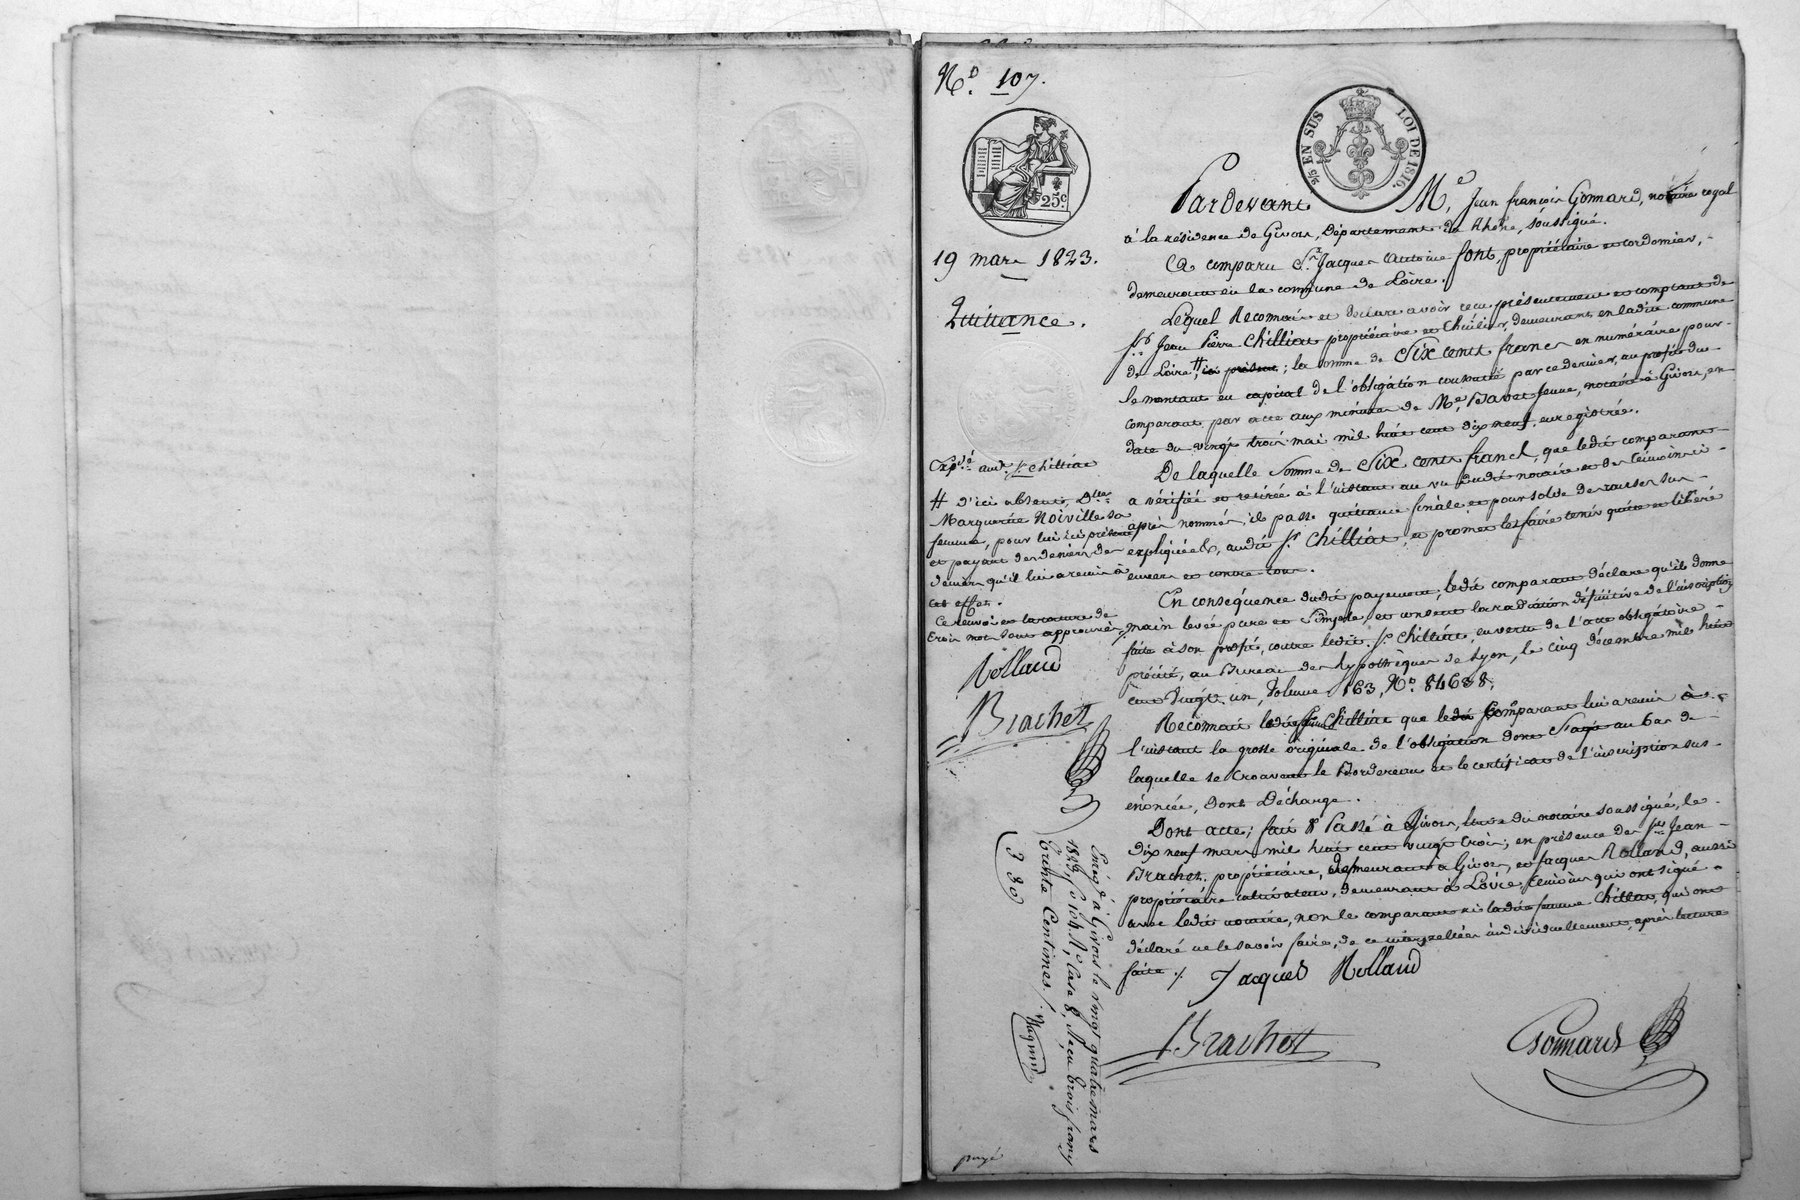 N.o 107.
2/5 EN SUS LOI DE 1816.
25c
19 mars 1823.
Quittance.
Pardevant M.e Jean françois Gonnard, notaire royal
à la résidence de Givors, Département du Rhône, soussigné.
A comparu S.r Jacques Antoine font, propriétaire et cordonnier,
demeurant en la commune de Loire.
Lequel Reconnait et déclare avoir reçu présentement et comptant de
s.r Jean Pierre Chilliat propriétaire et demeurant en ladite commune
de Loire, # ici présent; la somme de Six cents francs en numéraire pour
le montant en capital de l'obligation par ce dernier, au profit du
comparant, par acte aux minutes de M.e Bavet jeune, notaire à Givors, en
date du vingt trois mai mil huit cent dix neuf, enregistrée.
De laquelle Somme de Six cents francs, que ledit comparant
a vérifiée et retirée à l'instant au vu dudit notaire et des témoins ci-
après nommés, il passe quittance finale et pour solde des causes sus-
expliquées, audit s.r Chilliat, et promet les faire tenir quitte et libéré
envers et contre tous.
En conséquence dudit payement, ledit comparant déclare qu'il donne
main levée pure et Simple, et consent la radiation définitive de l'inscription
faite à son profit, contre ledit s.r Chilliat, en vertu de l'acte obligatoire
précité, au Bureau des hypothèques de Lyon, le cinq décembre mil huit
cent vingt un, Volume 163, N.o 84638.
Reconnait Chilliat que ledit Comparant lui a remis à
l'instant la grosse originale de l'obligation dont S'agit au bas de
laquelle se trouvent le Bordereau et le certificat de l'inscription sus-
énoncée, dont décharge.
Dont acte; fait & Passé à Givors, étude du notaire soussigné, le
dix neuf mars mil huit cent vingt trois; en présence des s.rs Jean
Brachet, propriétaire, demeurant à Givors, et Jacques Rolland, aussi
propriétaire cultivateur, demeurant à Loire, témoins qui ont signé
avec ledit notaire, non le comparant ni ladite femme Chilliat, qui ont
déclaré ne le savoir faire, de ce interpellés individuellement, après lecture
faite ./.
Jacques Rolland
Brachet
Gonnard
Exp.é aud. s.r Chilliat
# d'ici absent, D.lle
Marguerite Noiville sa
femme, pour lui ici présente
et payant des deniers de
dernier qu'il lui a remis à
cet effet.
Ce renvoi et la rature de
trois mots sont approuvés
Rolland
Brachet
Enreg.é à Givors le vingt quatre mars
1823, f.o 104 R.o, Case 8, Reçu trois francs
trente Centimes ./.
3 30
payé